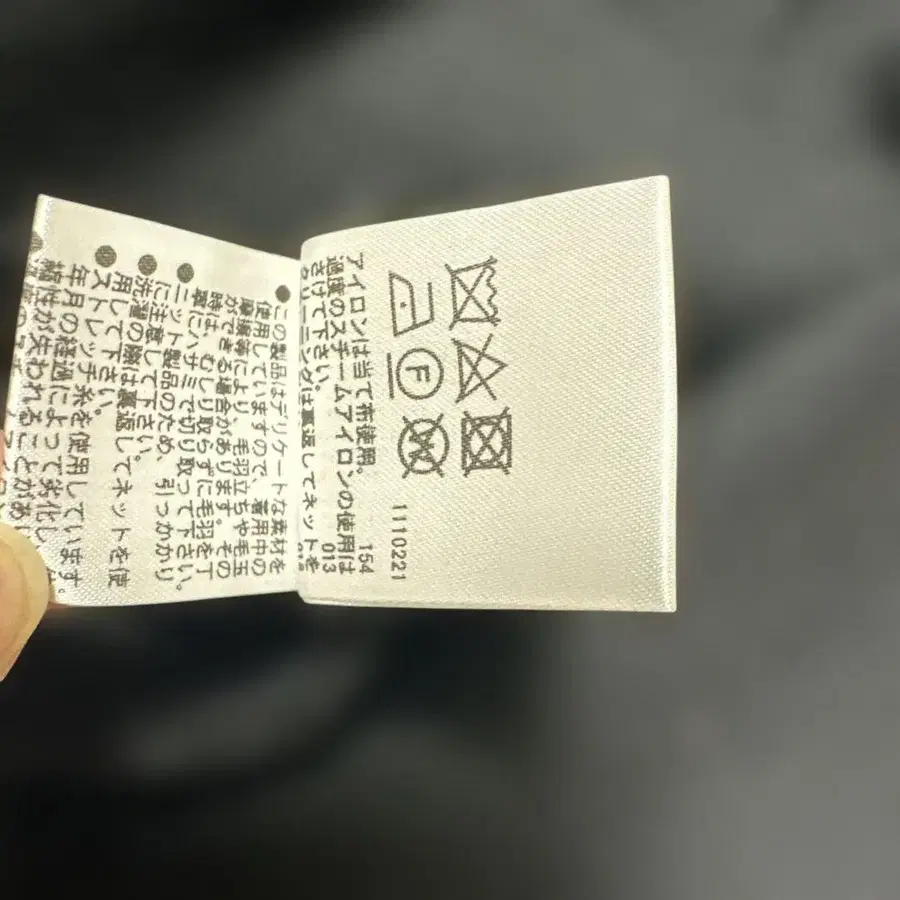 F
W
1110221
アイロンは当て布使用。 154
過度のスチームアイロンの使用は
さけて下さい。 013
クリーニングは裏返してネットを
●この製品はデリケートな素材を
使用していますので、着用中の
摩擦等により、毛羽立ちや毛玉
ができる場合があります。その
時は、むしり取らずに毛羽を丁
寧にハサミで切り取って下さい。
●ニット製品のため、引っかかり
に注意して下さい。
●洗濯の際は裏返してネットを使
用して下さい。
●ストレッチ糸を使用しています。
年月の経過によって劣化し、伸
縮性が失われることがあ